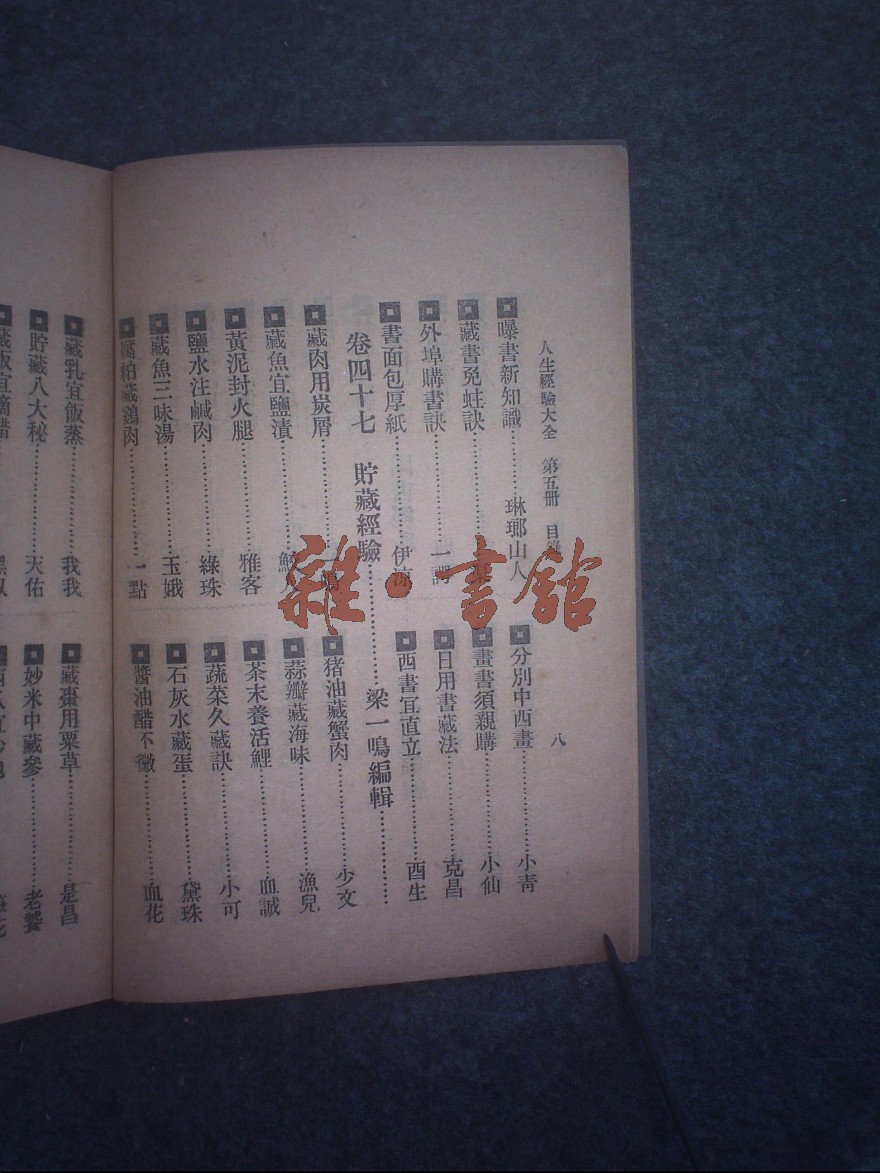 人生經驗大全 第五冊 目錄 八
曝書新知識 琳瑯山人
藏書免蛀訣
外埠購書訣 一諤
書面包厚紙 伊涼
分別中西畫 小青
畫書須親購 小仙
日用書藏法 克昌
西書宜直立 酉生
卷四十七 貯藏經驗 梁一鳴編輯
藏肉用炭屑
藏魚宜鹽漬
黃泥封火腿 雅客
鹽水注鹹肉 綠珠
藏魚三味湯 玉娥
腐粕藏鷄肉 一點
猪油藏蟹肉 少文
蒜瓣藏海味 漁兒
茶末養活鯉 血誠
蔬菜久藏訣 小可
石灰水藏蛋 黛珠
醬油醋不黴 血花
藏乳宜飯蒸 我我
貯藏八大秘 天佑
藏飯宜滴醋
藏棗用粟草 是昌
妙米中藏參 老饕
雜·書館